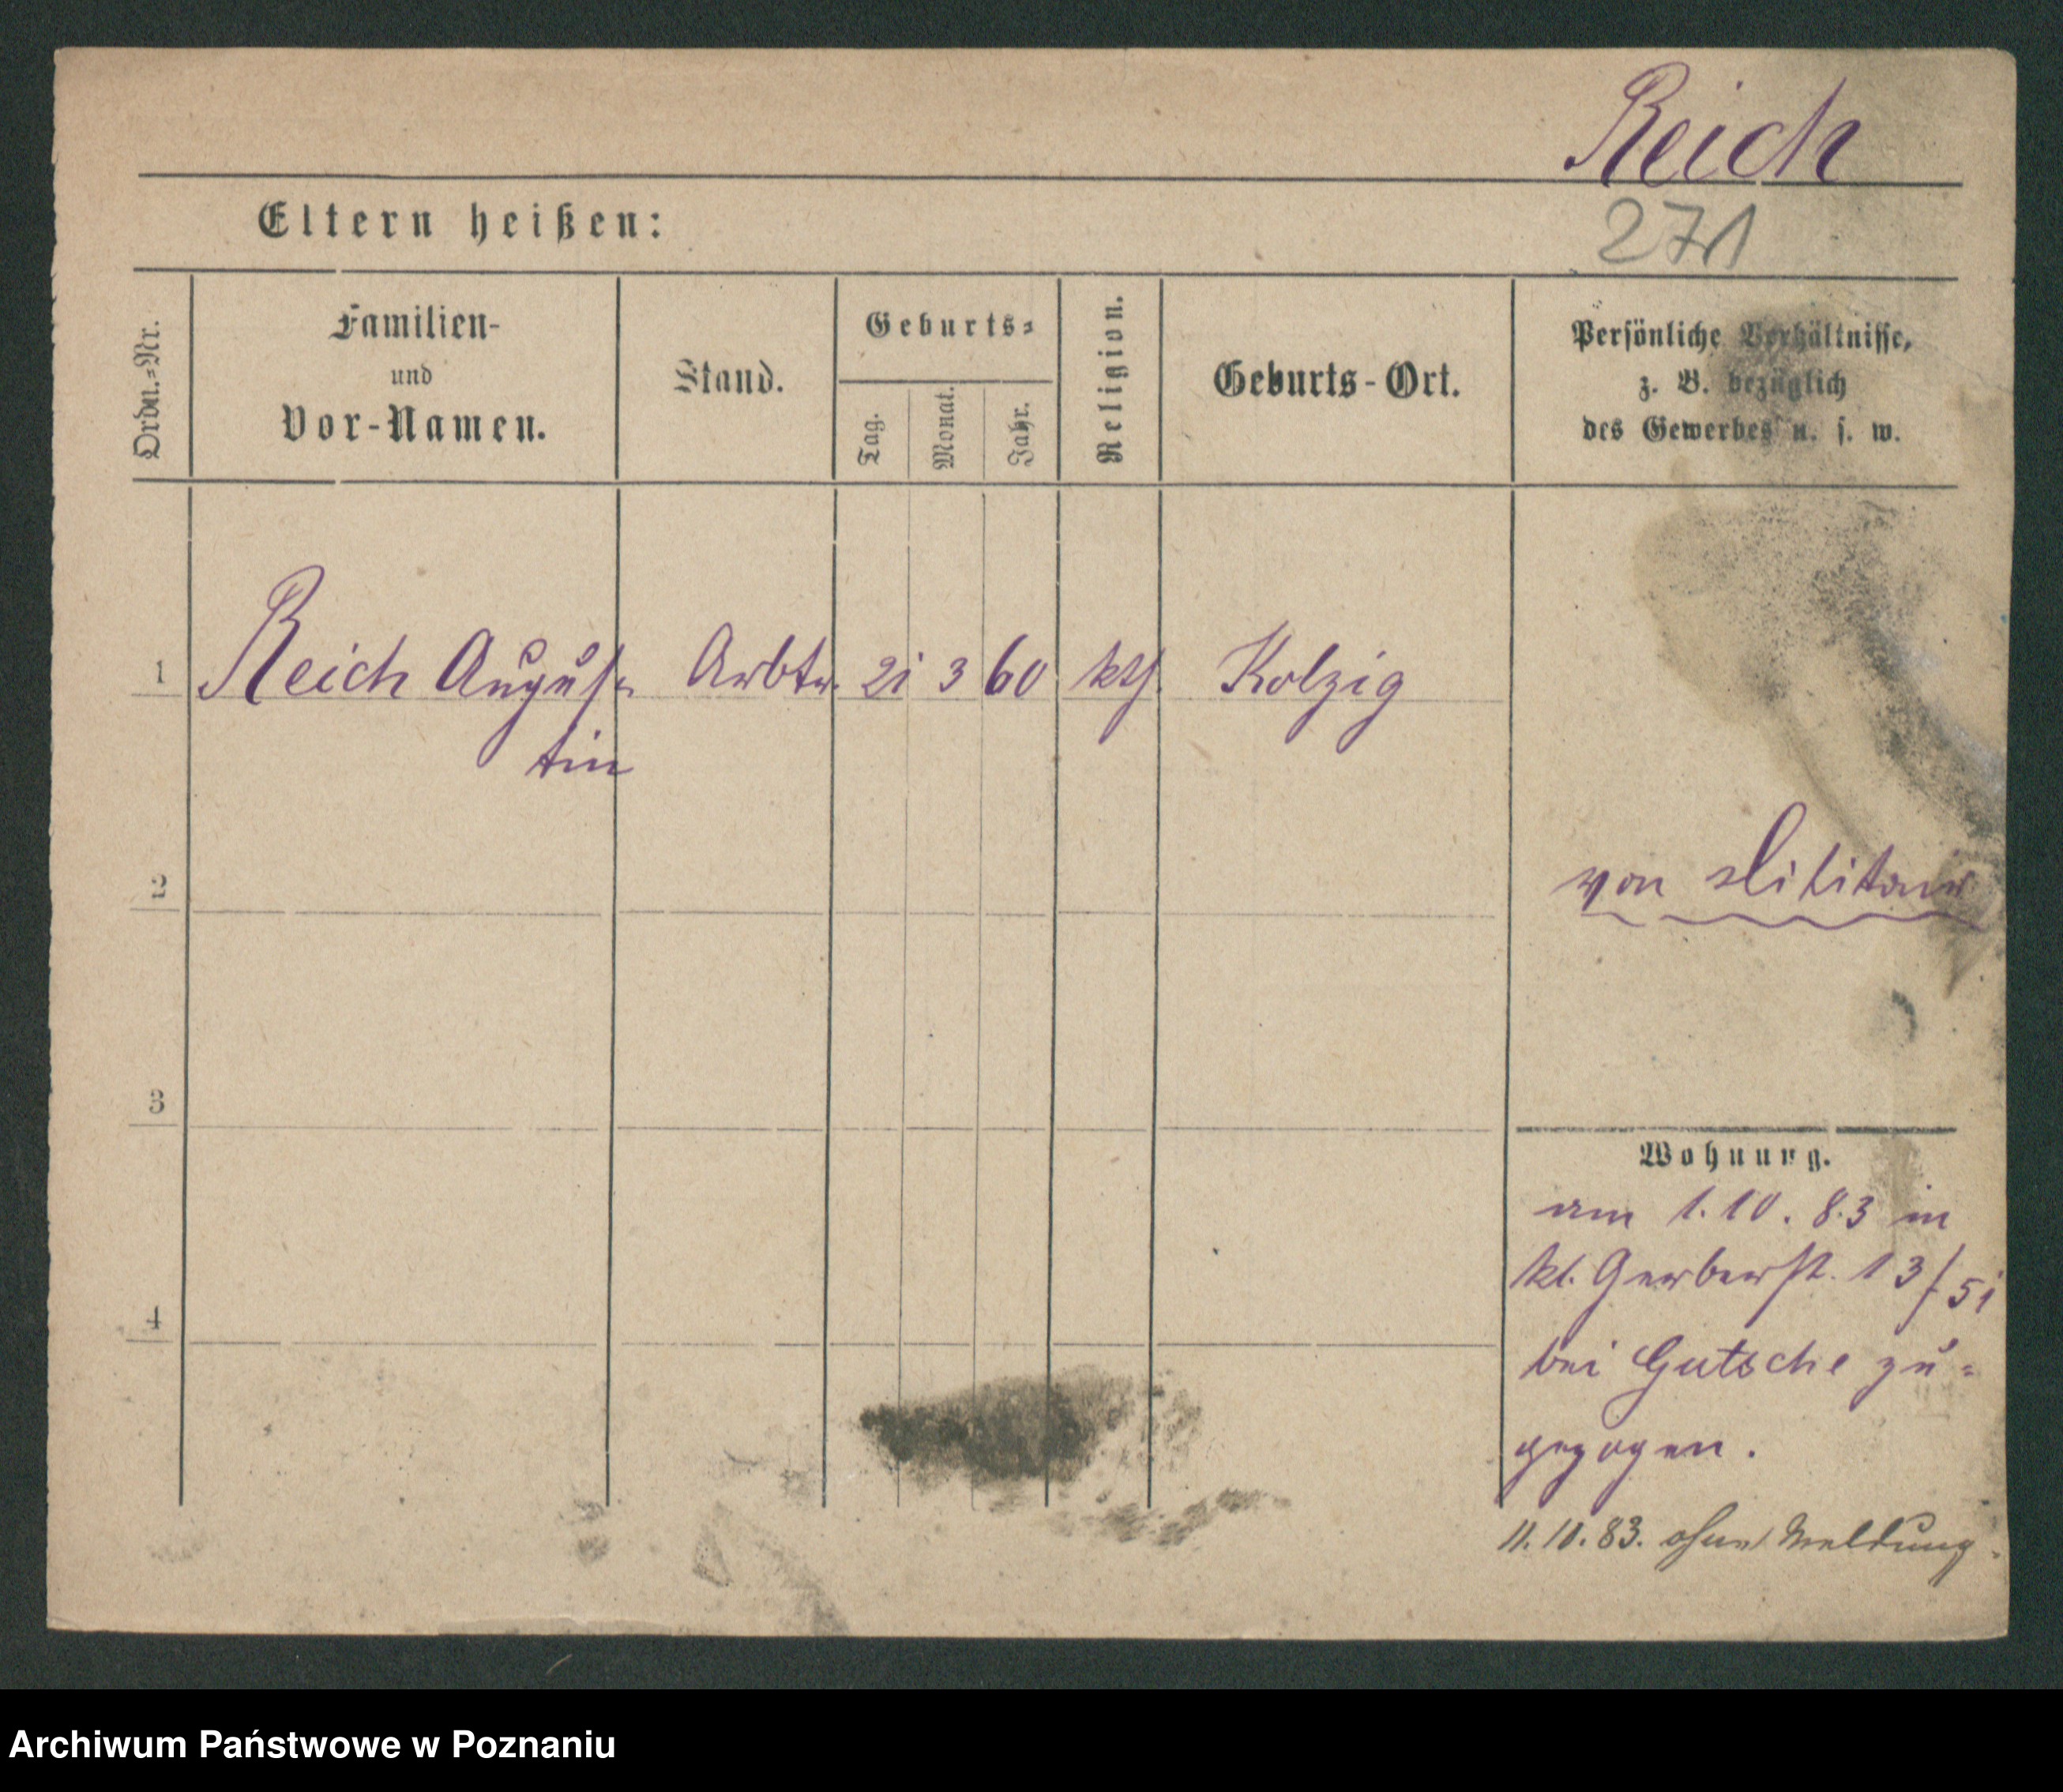 Reich
Eltern heißen:
271
Ordn.-Nr.
Familien-
und
Vor-Namen.
Stand.
Geburts-
Tag.
Monat.
Jahr.
Religion.
Geburts-Ort.
Persönliche Verhältnisse,
z. B. bezüglich
des Gewerbes u. s. w.
1 Reich Augus- Arbtr. 21 3 60 kth. Kolzig
tin
2
von Militair
3
Wohnung.
am 1.10.83 in
kl. Gerberst. 13/51
bei Gutsche zu-
gezogen.
4
11.10.83. ohne Meldung.
Archiwum Państwowe w Poznaniu